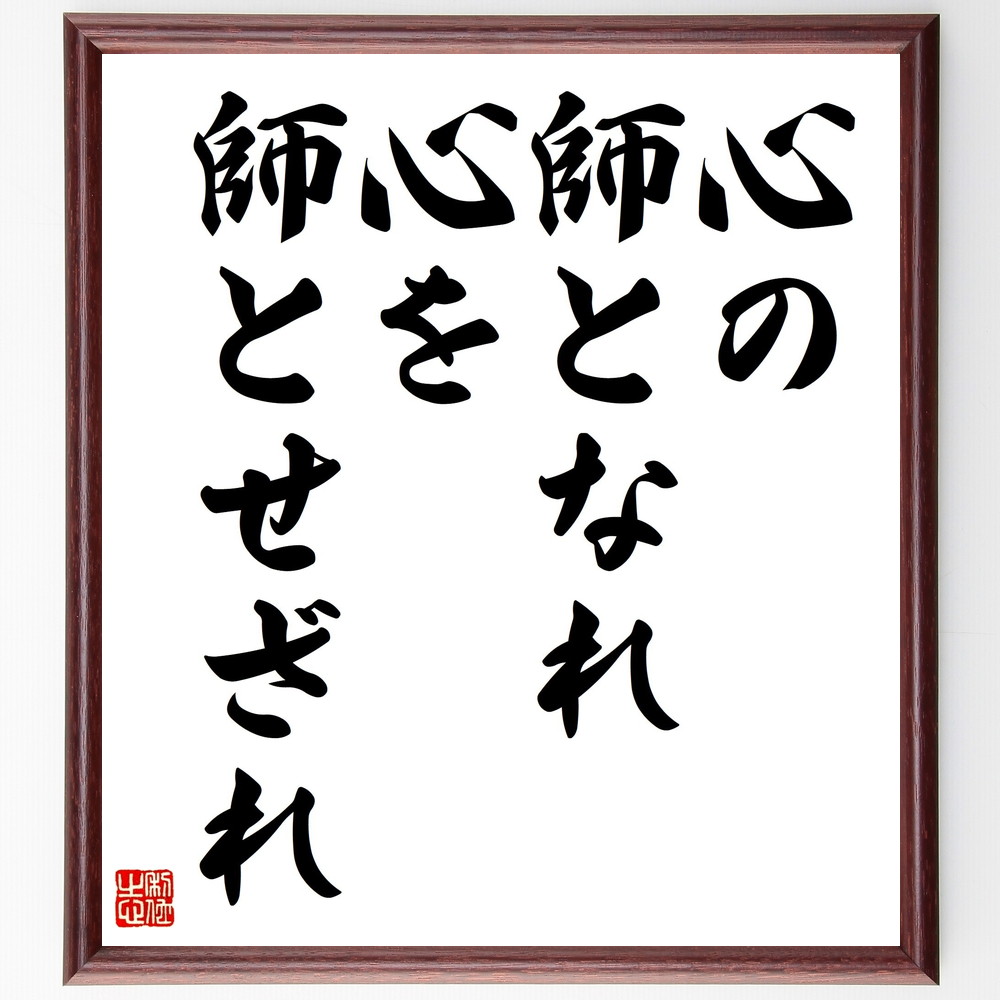 心の
師となれ
心を
師とせざれ